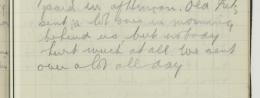 paid in afternoon. Old Fritz
sent a lot over in morning
behind us but nobody
hurt much at all. We sent
over a lot all day